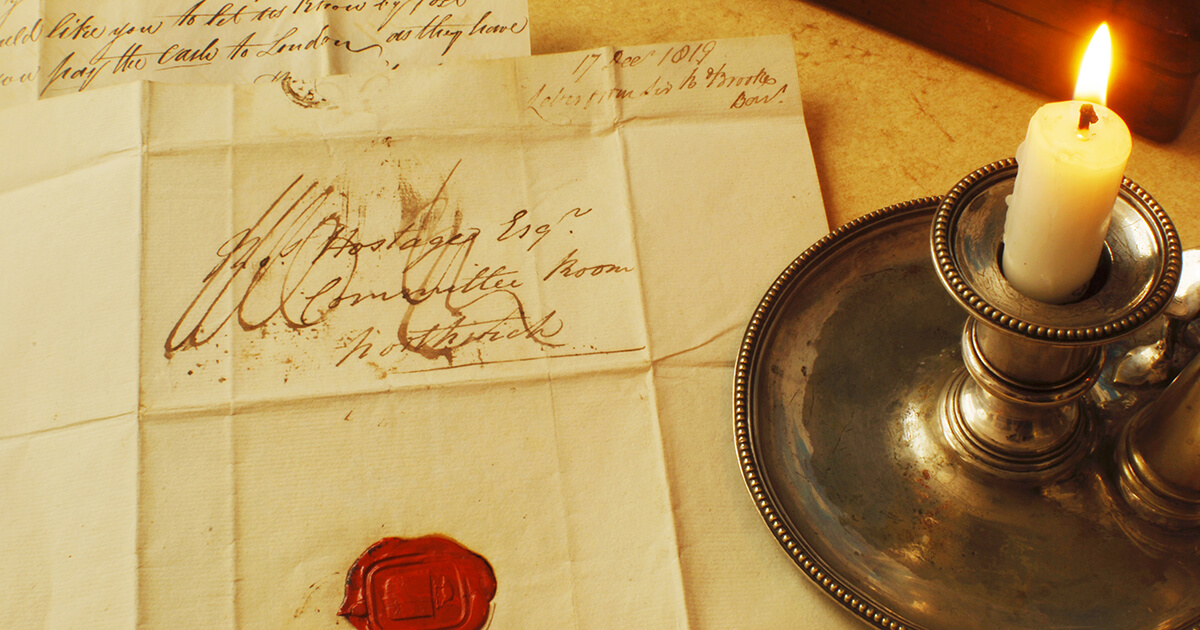 like you to let us know by post
pay the cash to London as they have
17 Dec 1819
Letter from Sir R Brooke
Bar.t
Hostage Esq.r
Committee Room
Northwich